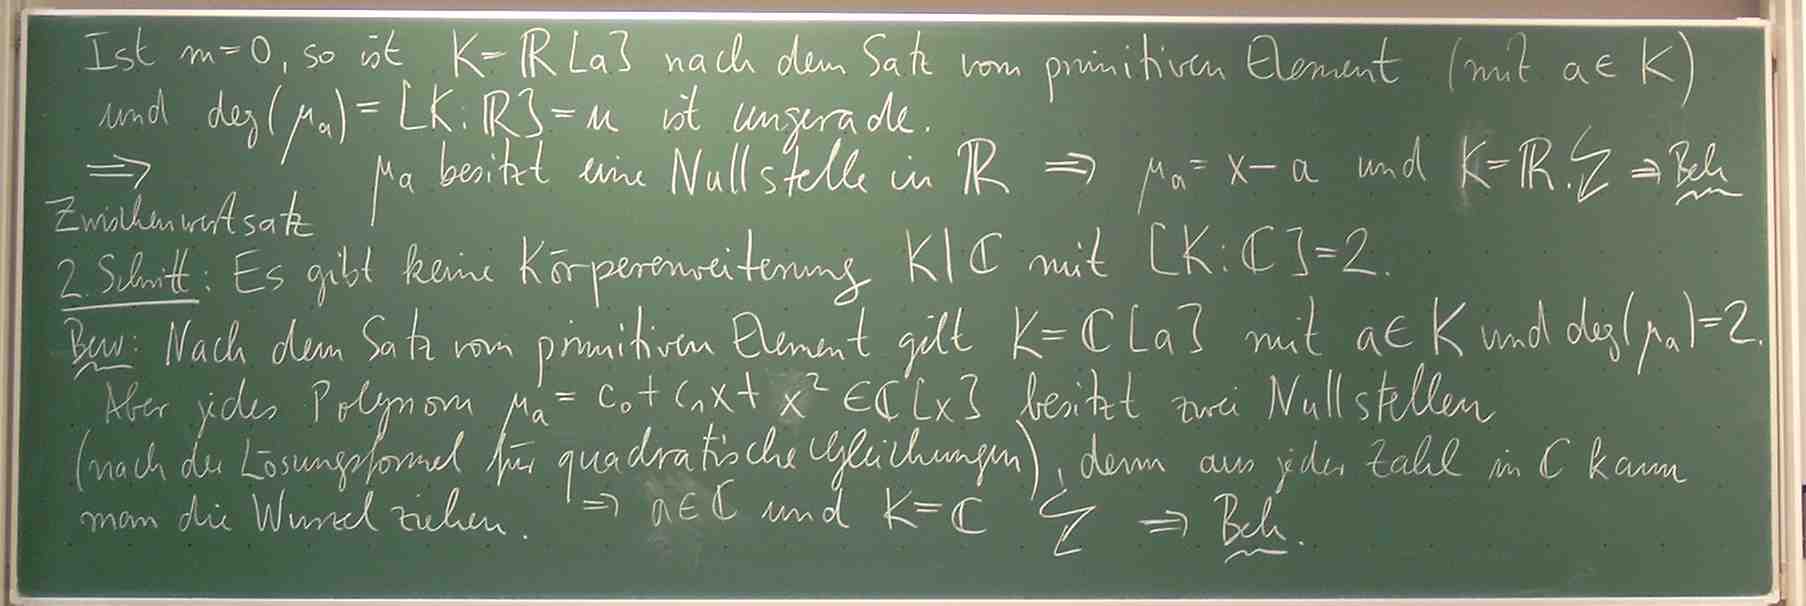 Ist m=0, so ist K=ℝ[a] nach dem Satz vom primitiven Element (mit a∈K)
und deg(μₐ)=[K:ℝ]=u ist ungerade.
⇒ μₐ besitzt eine Nullstelle in ℝ ⇒ μₐ=x-a und K=ℝ. ↯ ⇒ Beh
Zwischenwertsatz
2. Schritt: Es gibt keine Körpererweiterung K|ℂ mit [K:ℂ]=2.
Bew: Nach dem Satz vom primitiven Element gilt K=ℂ[a] mit a∈K und deg(μₐ)=2.
Aber jedes Polynom μₐ=c₀+c₁x+x²∈ℂ[x] besitzt zwei Nullstellen
(nach der Lösungsformel für quadratische Gleichungen), denn aus jeder Zahl in ℂ kann
man die Wurzel ziehen. ⇒ a∈ℂ und K=ℂ ↯ ⇒ Beh.